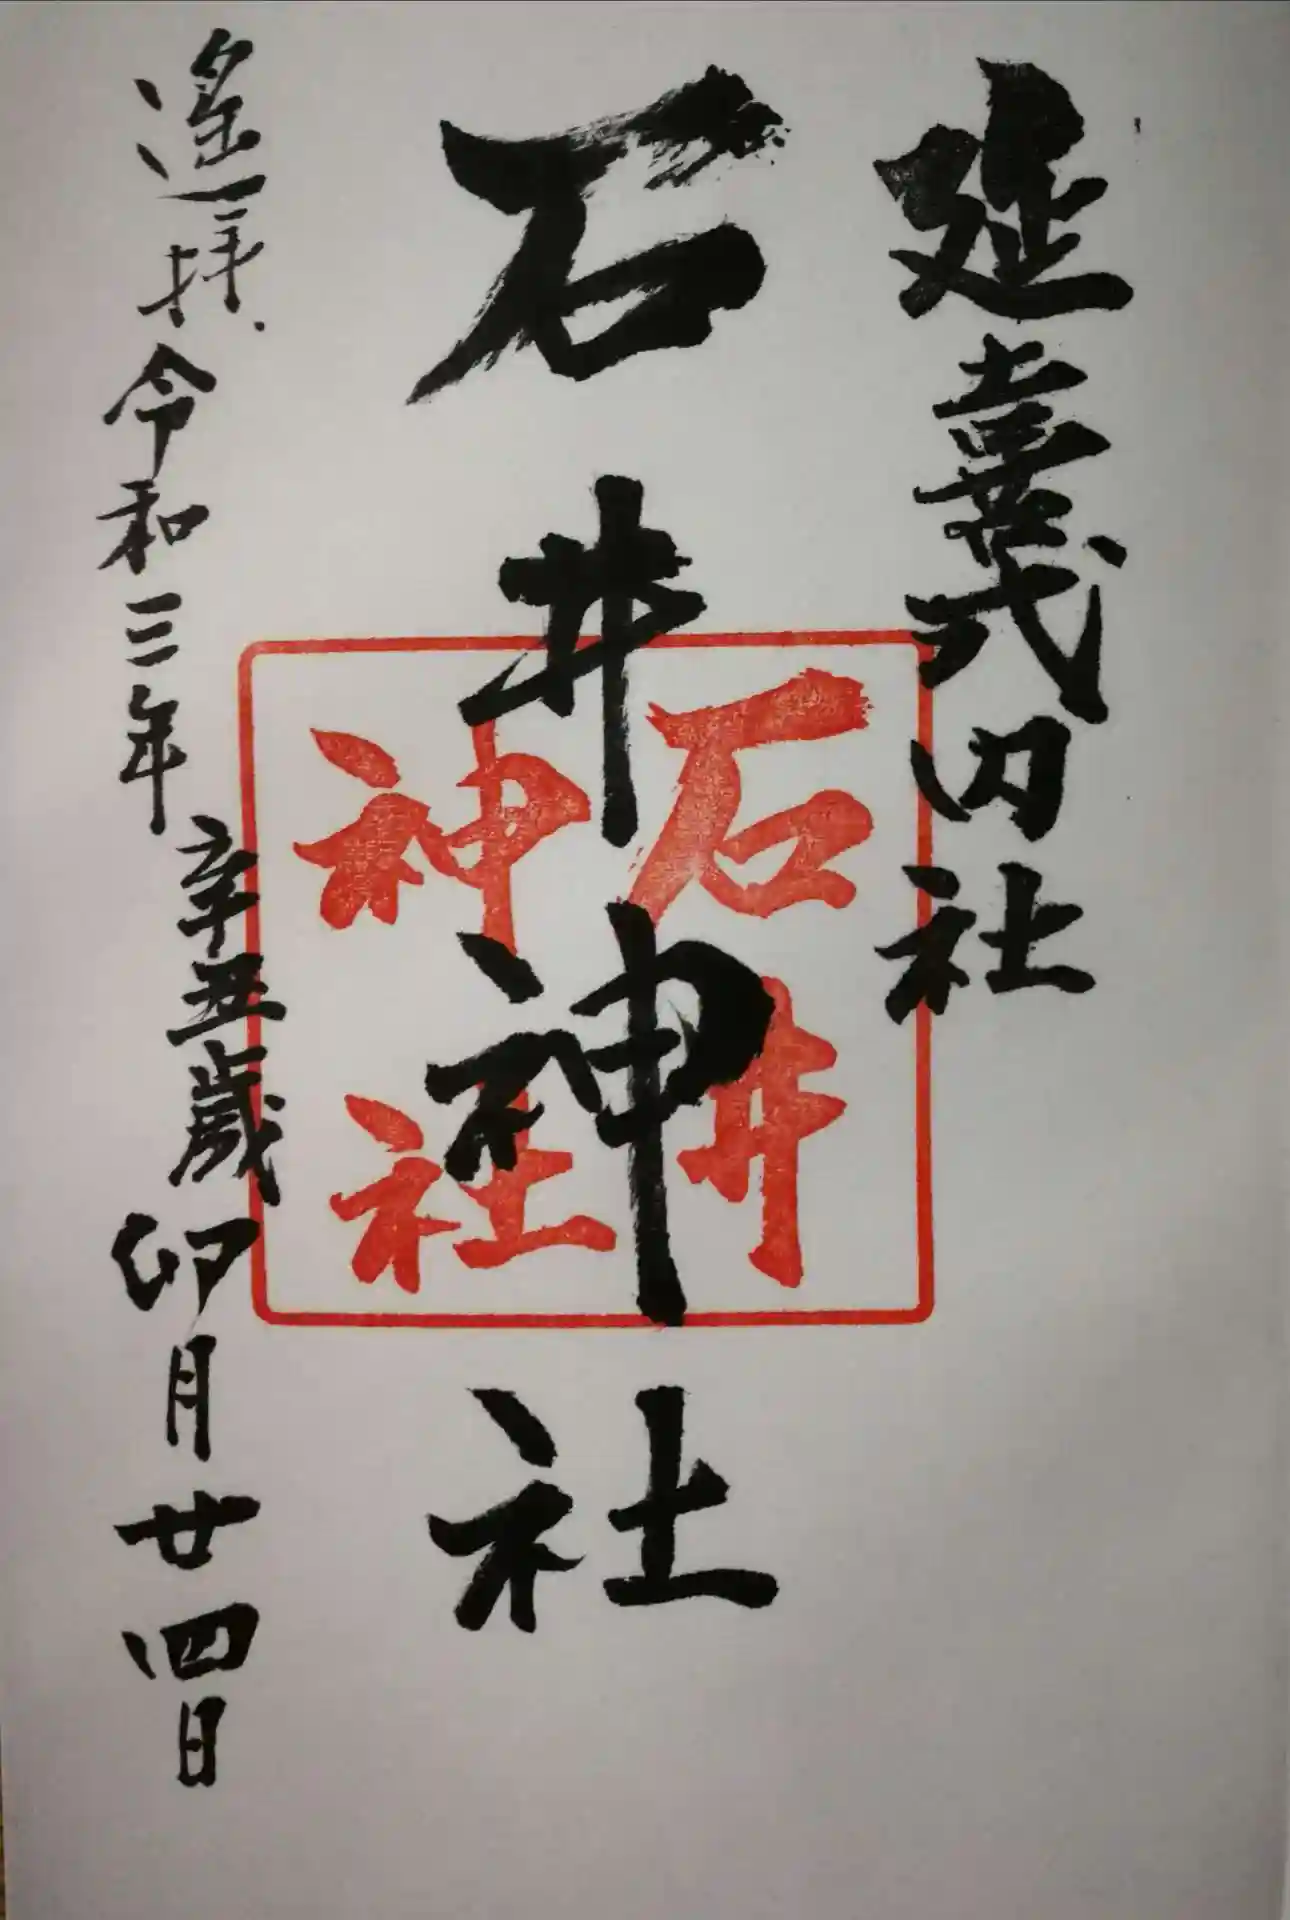 延喜式内社
石井神社
石井
神社
遙拝
令和三年
辛丑歳
卯月廿四日